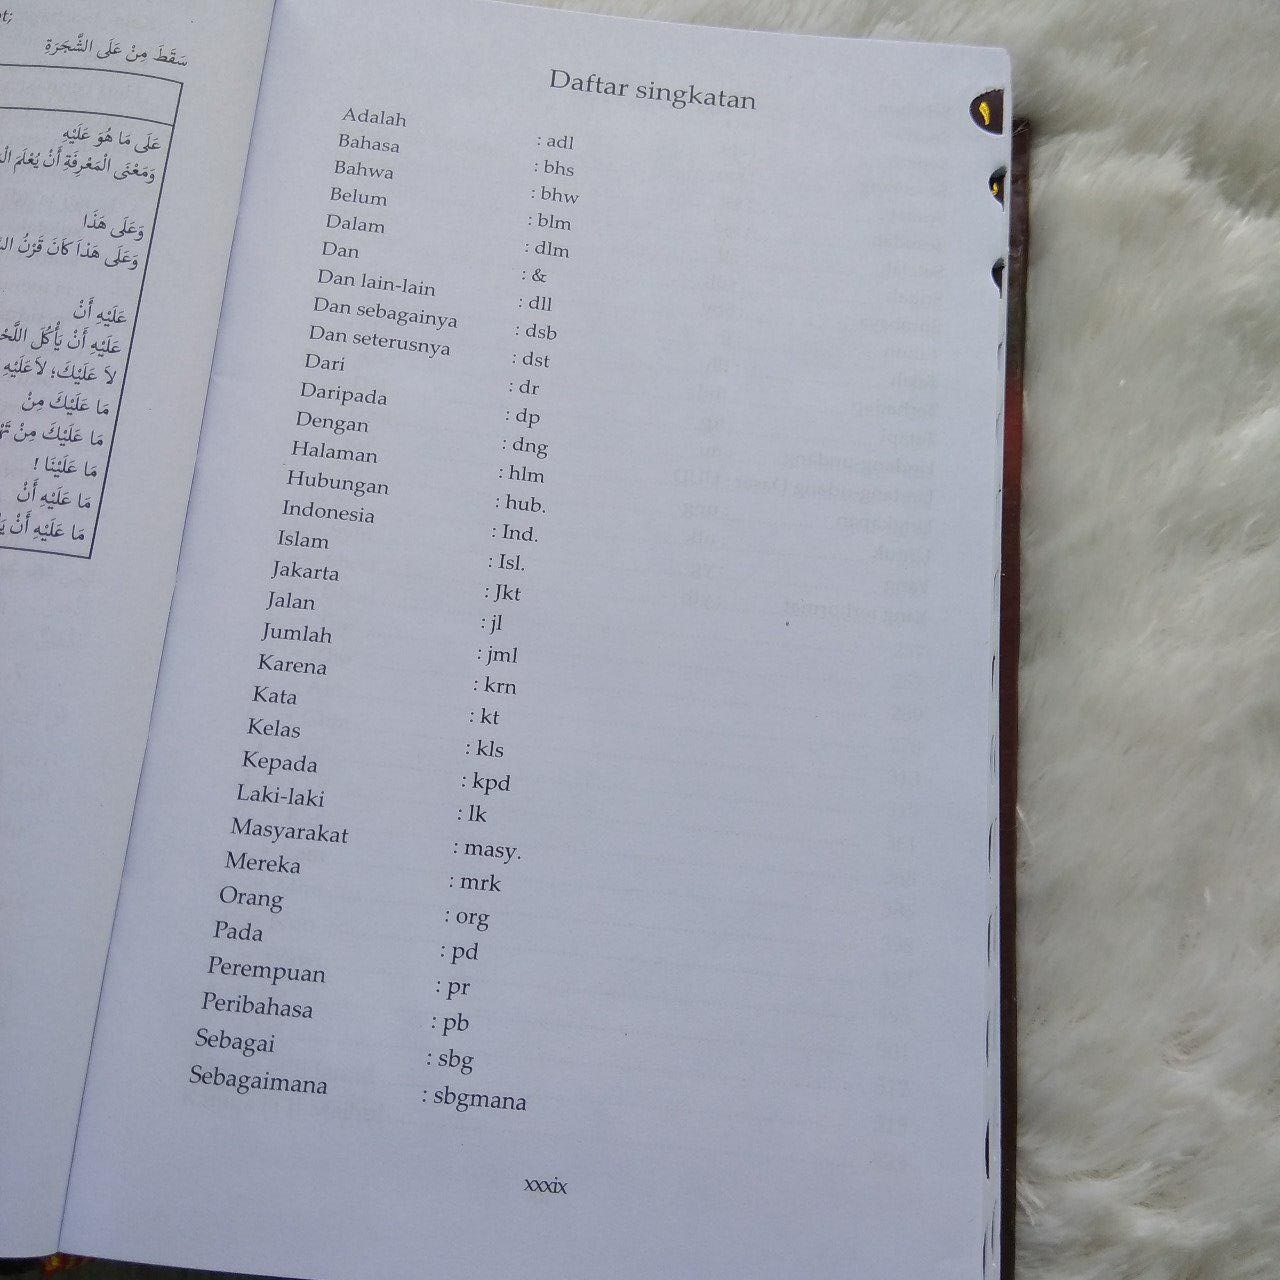 سَقَطَ مِنْ عَلَى الشَّجَرَةِ
عَلَى مَا هُوَ عَلَيْهِ
وَمَعْنَى الْمَعْرِفَةِ أَنْ يُعْلَمَ
وَعَلَى هَذَا
وَعَلَى هَذَا كَانَ قَرْنُ
عَلَيْهِ أَنْ
عَلَيْهِ أَنْ يَأْكُلَ
لاَ عَلَيْكَ؛ لاَ عَلَيْهِ
مَا عَلَيْكَ مِنْ
مَا عَلَيْكَ مِنْ
مَا عَلَيْنَا !
مَا عَلَيْهِ أَنْ
مَا عَلَيْهِ أَنْ
Daftar singkatan
Adalah : adl
Bahasa : bhs
Bahwa : bhw
Belum : blm
Dalam : dlm
Dan : &
Dan lain-lain : dll
Dan sebagainya : dsb
Dan seterusnya : dst
Dari : dr
Daripada : dp
Dengan : dng
Halaman : hlm
Hubungan : hub.
Indonesia : Ind.
Islam : Isl.
Jakarta : Jkt
Jalan : jl
Jumlah : jml
Karena : krn
Kata : kt
Kelas : kls
Kepada : kpd
Laki-laki : lk
Masyarakat : masy.
Mereka : mrk
Orang : org
Pada : pd
Perempuan : pr
Peribahasa : pb
Sebagai : sbg
Sebagaimana : sbgmana
xxxix